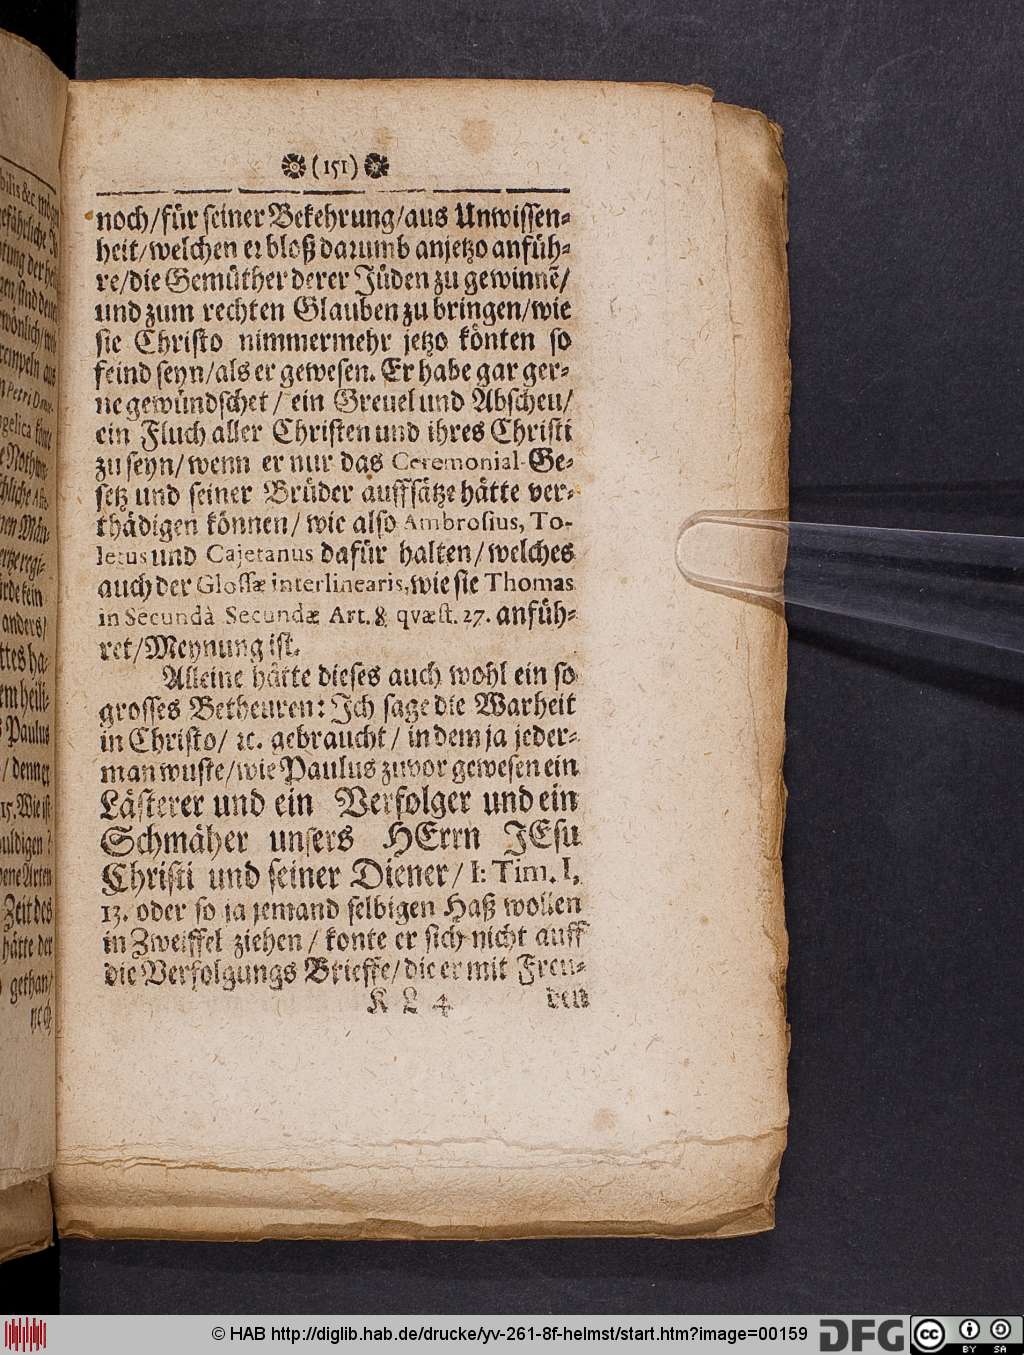 (151)
noch/für seiner Bekehrung/aus Unwissen-
heit/welchen er bloß darumb anjetzo anfüh-
re/die Gemüther derer Jüden zu gewinnē/
und zum rechten Glauben zu bringen/wie
sie Christo nimmermehr jetzo könten so
feind seyn/als er gewesen. Er habe gar ger-
ne gewündschet/ ein Greuel und Abscheu/
ein Fluch aller Christen und ihres Christi
zu seyn/wenn er nur das Ceremonial-Ge-
setz und seiner Brüder auffsätze hätte ver-
thädigen können/ wie also Ambrosius, To-
letus und Cajetanus dafür halten/welches
auch der Glossæ interlinearis, wie sie Thomas
in Secundâ Secundæ Art. 8 qvæst. 27. anfüh-
ret/Meynung ist.
Alleine hätte dieses auch wohl ein so
grosses Betheuren: Ich sage die Warheit
in Christo/ ꝛc. gebraucht/ in dem ja jeder-
man wuste/wie Paulus zuvor gewesen ein
Lästerer und ein Verfolger und ein
Schmäher unsers HErrn JEsu
Christi und seiner Diener/ I: Tim. I,
13. oder so ja jemand selbigen Haß wollen
in Zweiffel ziehen/ konte er sich nicht auff
die Verfolgungs Brieffe/die er mit Freu-
K L 4 den
© HAB http://diglib.hab.de/drucke/yv-261-8f-helmst/start.htm?image=00159
DFG
cc BY SA